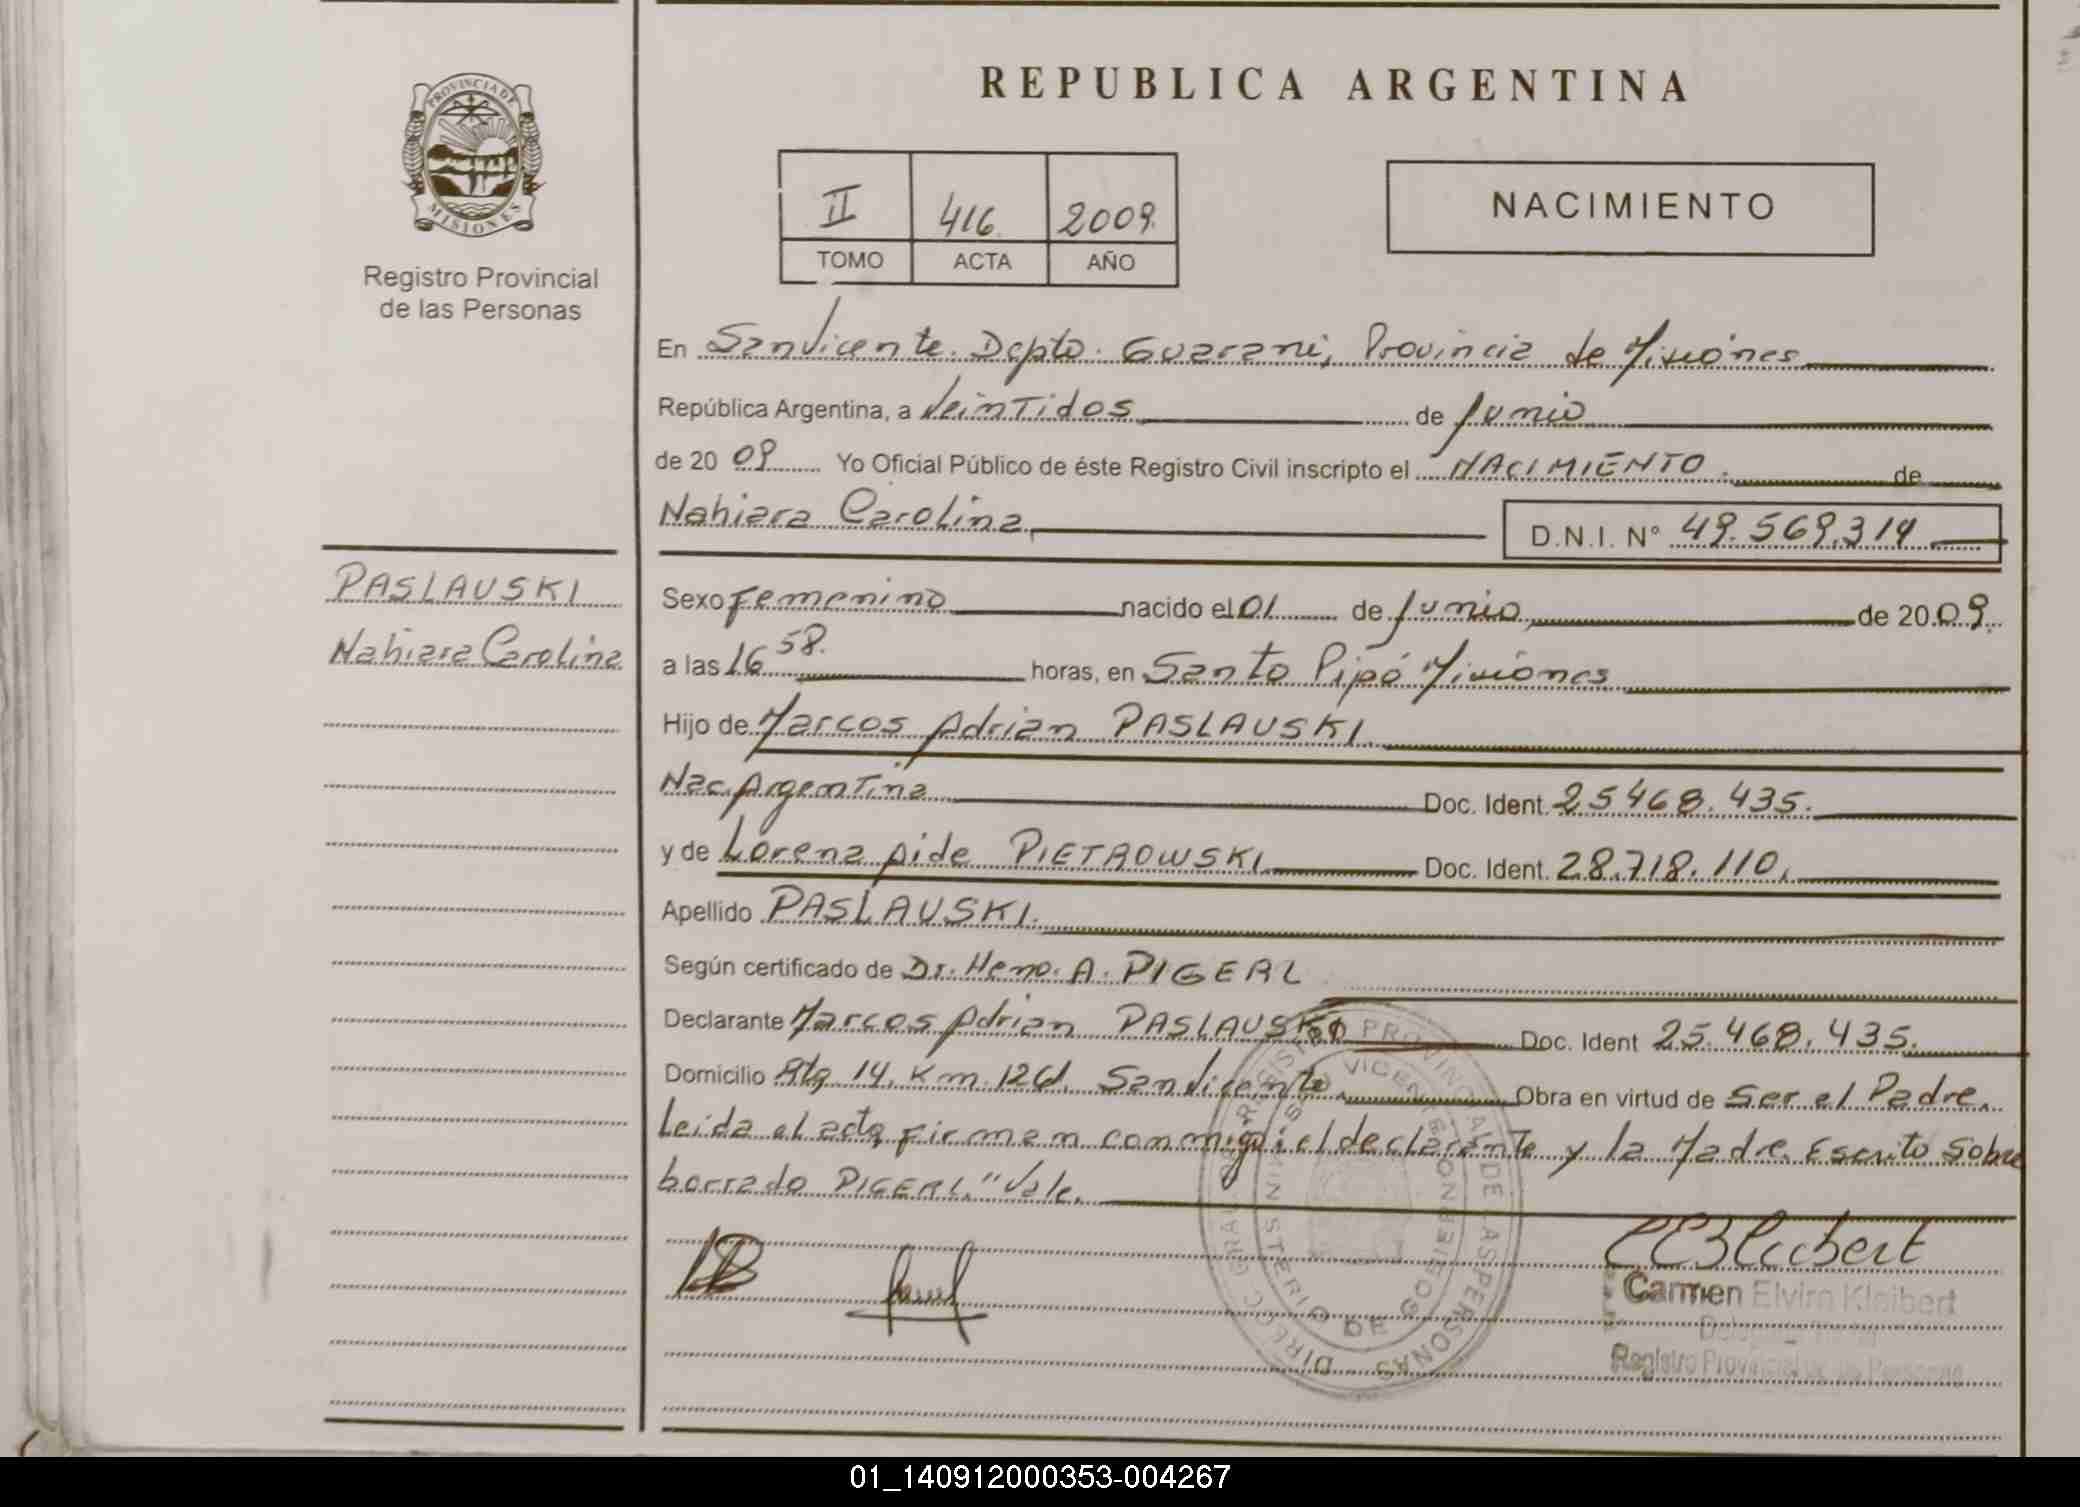 REPUBLICA ARGENTINA
PROVINCIA DE
MISIONES
Registro Provincial
de las Personas
II 416 2009.
TOMO ACTA AÑO
NACIMIENTO
En San Vicente. Dcpto. Guarani, Provincia de Misiónes
República Argentina, a Veintidos de Junio
de 20 09 Yo Oficial Público de éste Registro Civil inscripto el NACIMIENTO. de
Nahiara Carolina D.N.I. Nº 49.569.314
PASLAUSKI
Nahiara Carolina
Sexo Femenino nacido el 01 de Junio de 20 09.
a las 16 58. horas, en Santo Pipó Misiónes
Hijo de Marcos Adrian PASLAUSKI
Nac. Argentina Doc. Ident. 25468.435.
y de Lorena Aide PIETROWSKI Doc. Ident. 28.718.110.
Apellido PASLAUSKI.
Según certificado de Dr. A. PIGERL
Declarante Marcos Adrian PASLAUSKI Doc. Ident 25.468.435.
Domicilio Rta. 14. Km. San Vicente Obra en virtud de Ser el Padre.
Leida el acta, Firman conmigo el declarante y la Madre. Escrito Sobre
borrado PIGERL." Vale.
Carmen Elvira Kleibert
Registro Provincial de las Personas
01_140912000353-004267